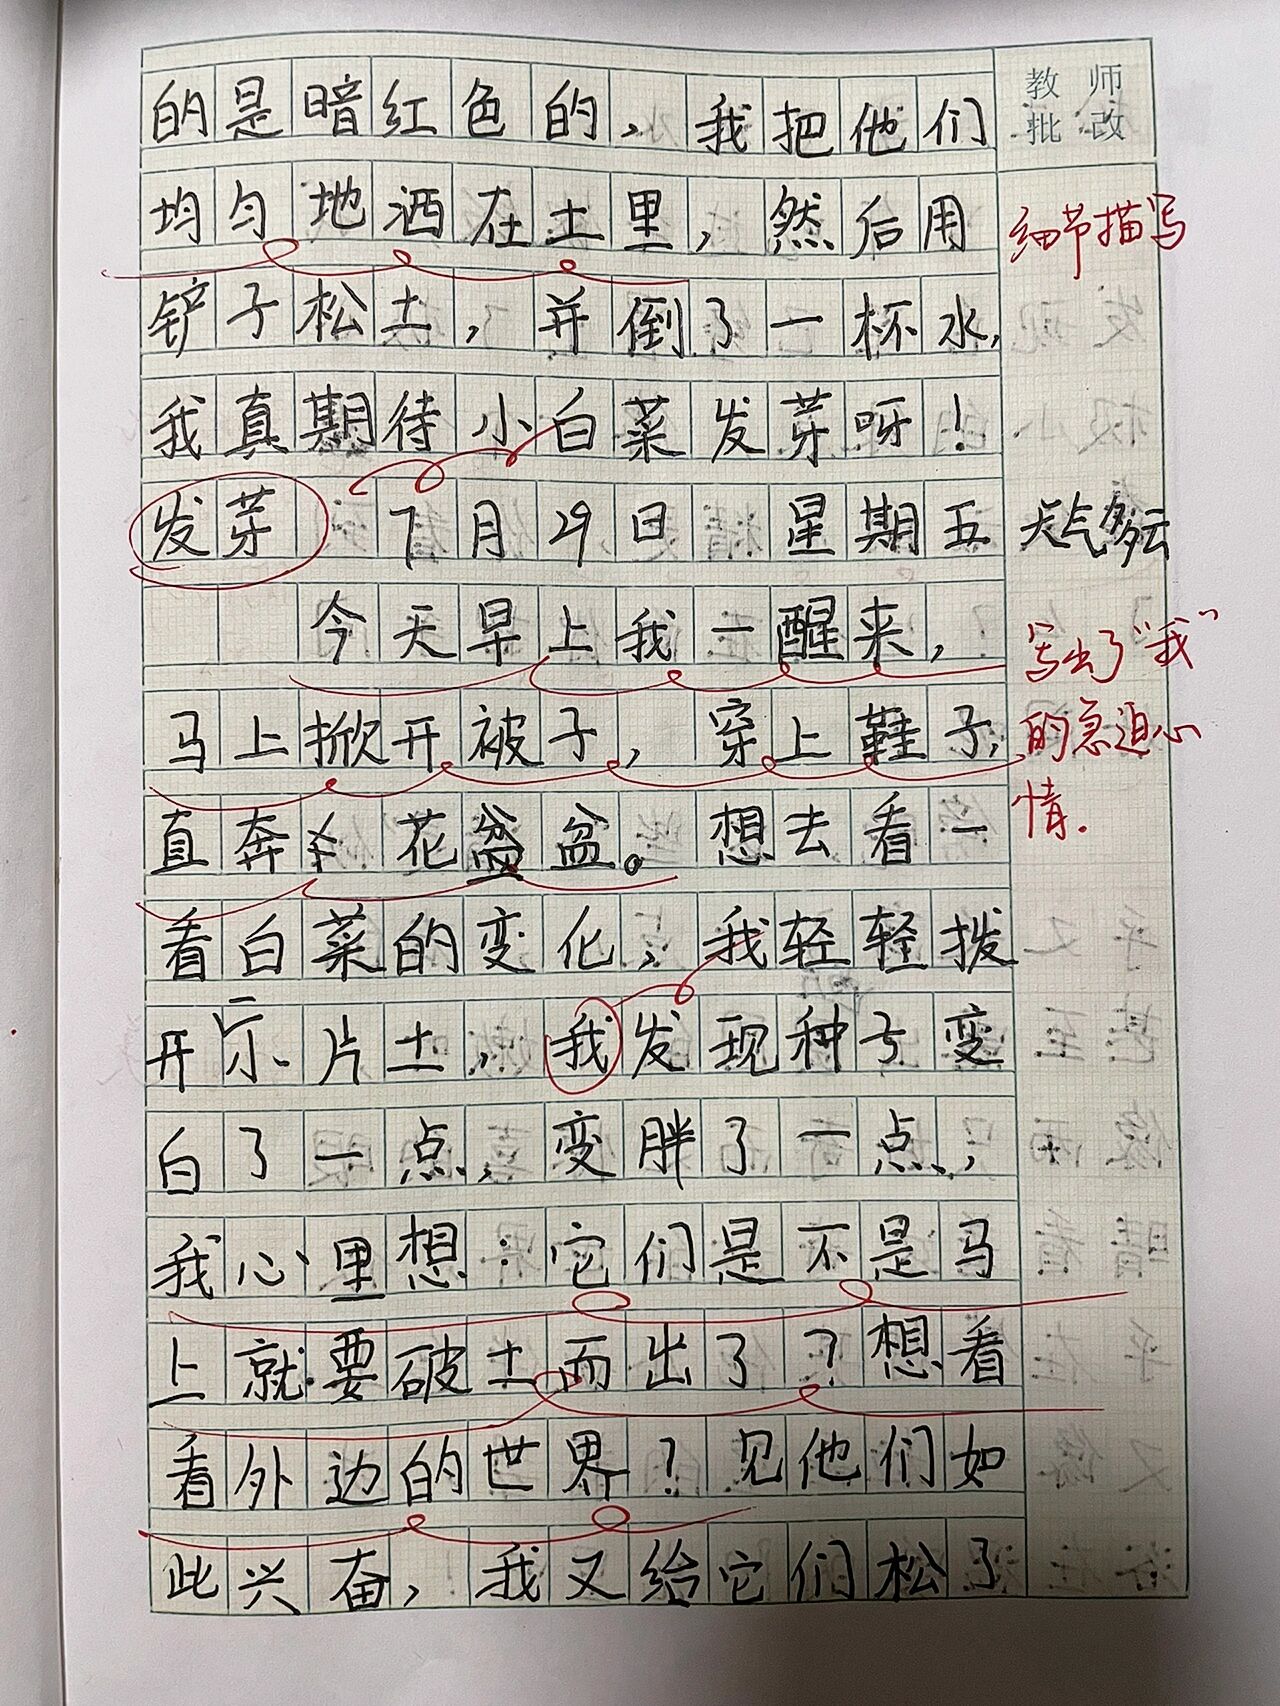 的是暗红色的，我把他们
教师
批改
均匀地洒在土里，然后用
细节描写
铲子松土，并倒了一杯水，
我真期待小白菜发芽呀！
发芽 7月29日 星期五 天气多云
今天早上我一醒来，
写出了“我”
马上掀开被子，穿上鞋子，
的急迫心
直奔花盆盆。想去看一
情.
看白菜的变化，我轻轻拨
开一小片土，我发现种子变
白了一点，变胖了一点，
我心里想：它们是不是马
上就要破土而出了？想看
看外边的世界？见他们如
此兴奋，我又给它们松了